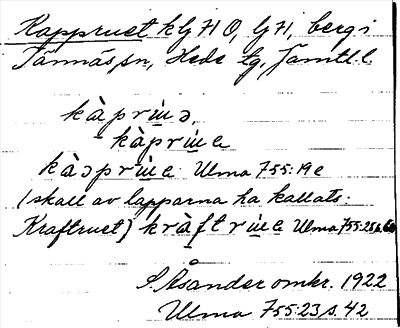 Kappruet k G 71 O, G 71, berg i
Tännäs sn, Hede tg, Jämtl. l.
kàprụụə,
kàprụụe
kàəprụụe Ulma 755:19 e
(skall av lapparna ha kallats:
Kraftruet) kràftrụụe Ulma 755:25 s.
S. Åsander omkr. 1922
Ulma 755:23 s. 42